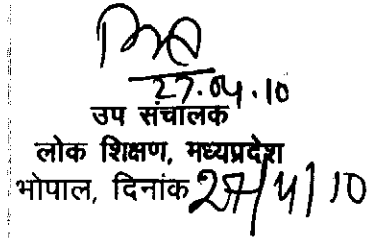 27.04.10
उप संचालक
लोक शिक्षण, मध्यप्रदेश
भोपाल, दिनांक 27/4/10